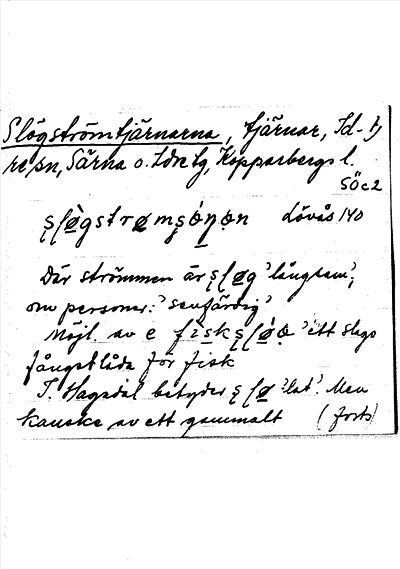 Slögströmtjärnarna, tjärnar, Id-
re sn, Särna o. Idre tg, Kopparbergs l.
SÖc2
ʂʃø̀gstrømʂø̀ṇøn Lövås 140
Där strömmen är ʂʃøg 'långsam';
om personer: 'senfärdig'
Möjl. av e fìskʂʃø̀ø 'ett slags
fångstlåda för fisk
I. Hagsdal betyder ʂʃø 'lat'. Men
kanske av ett gammalt (forts)